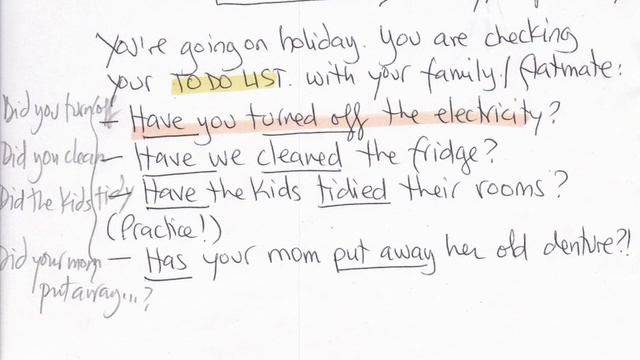 You're going on holiday. You are checking
your TO DO LIST. with your family/flatmate:
Did you turn off - Have you turned off the electricity?
Did you clean - Have we cleaned the fridge?
Did the kids tidy - Have the kids tidied their rooms?
(Practice!)
Did your mom - Has your mom put away her old denture?!
put away...?